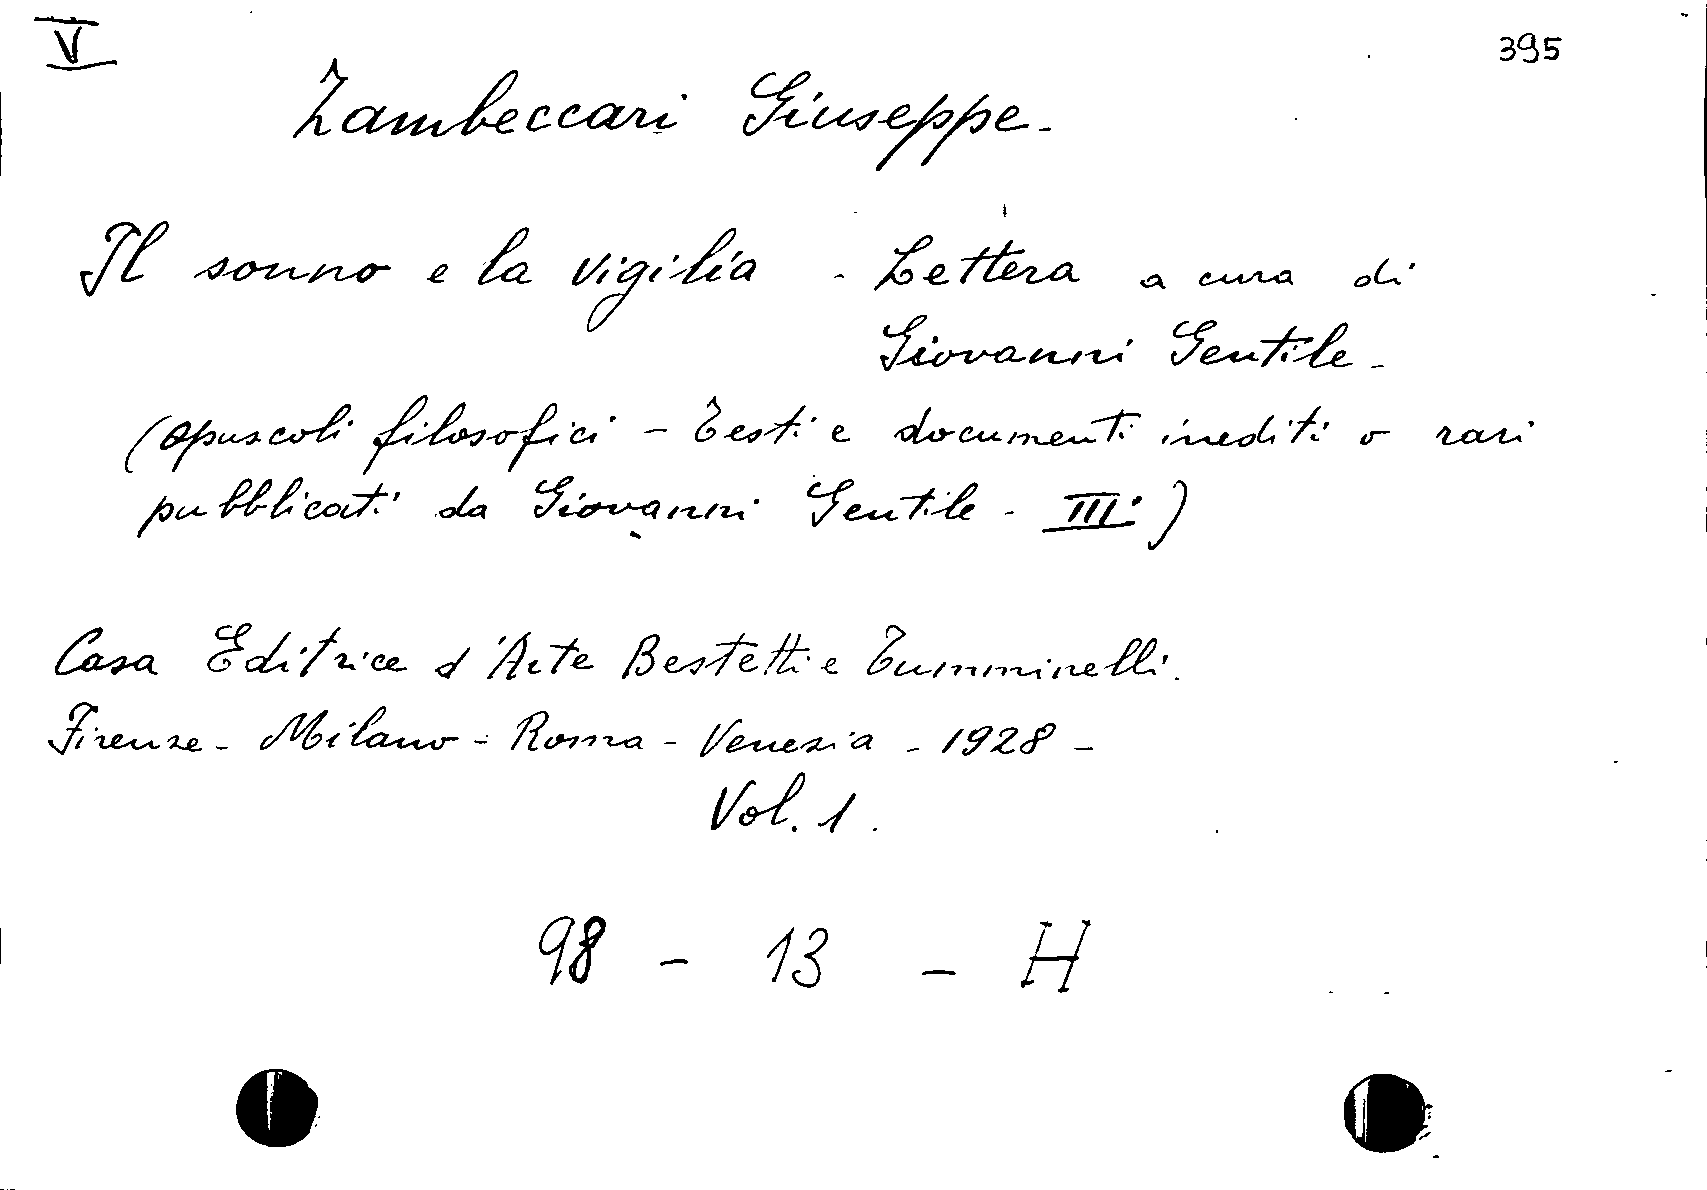 V
395
Zambeccari Giuseppe.
Il sonno e la vigilia - Lettera a cura di
Giovanni Gentile.
(opuscoli filosofici - Testi e documenti inediti o rari
pubblicati da Giovanni Gentile - III.)
Casa Editrice d'Arte Bestetti e Tumminelli.
Firenze - Milano - Roma - Venezia - 1928 -
Vol. 1.
98 - 13 - H